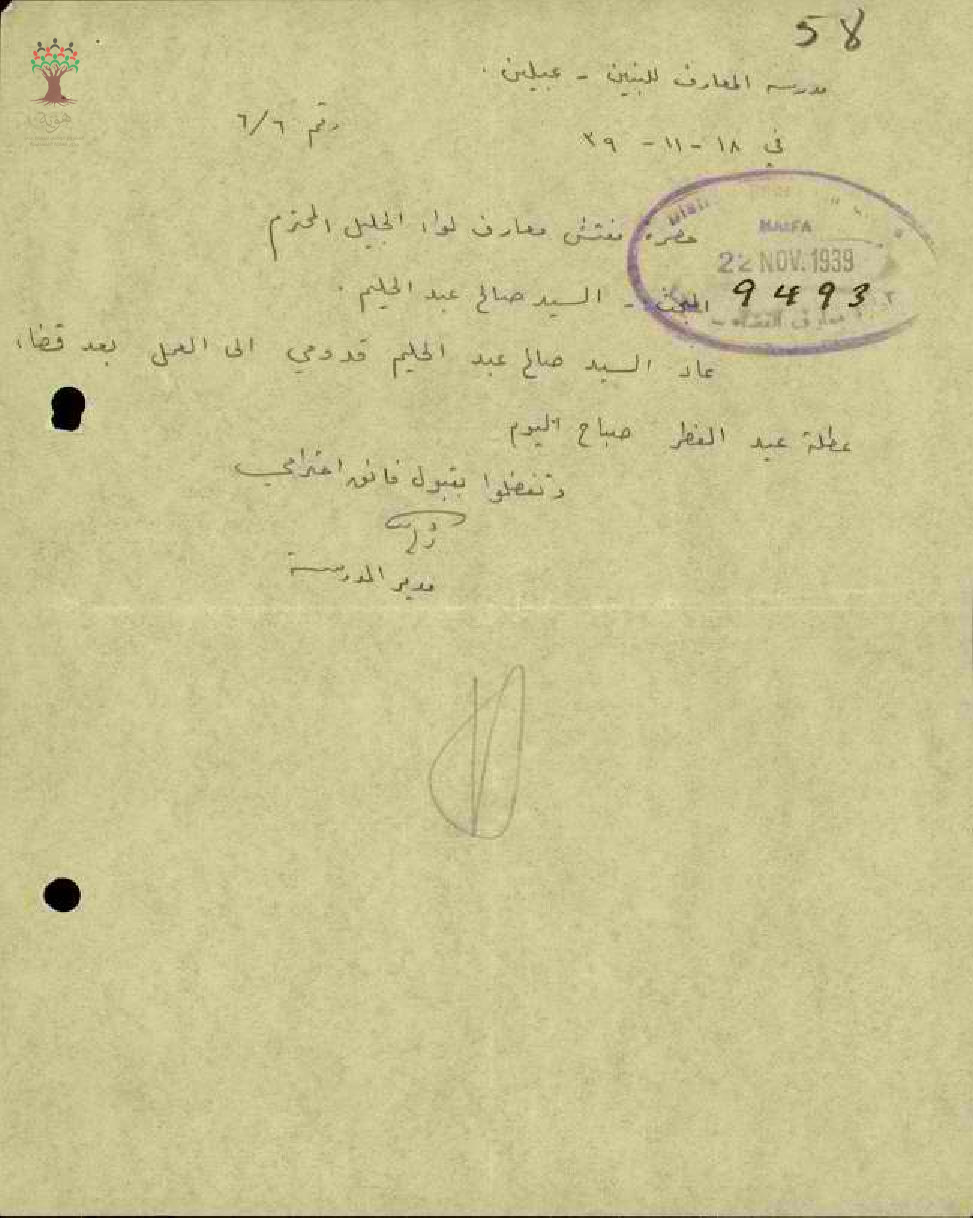 58
مدرسه المعارف للبنين - عبيلين .
رقم ٦/٦
في ١٨ - ١١ - ٣٩
حضرة مفتش معارف لواء الجليل المحترم
HAIFA
22 NOV. 1939
9493
المبحث - السيد صالح عبد الحليم .
معارف القضاء -
عاد السيد صالح عبد الحليم قدومي الى العمل بعد قضاء
عطلة عيد الفطر صباح اليوم
وتفضلوا بقبول فائق احترامي
مدير المدرسة